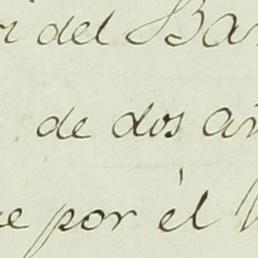 del Ba
de dos añ
por él